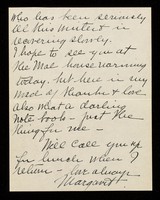 who has been seriously
ill this winter & is
recovering slowly.
I hope to see you at
the Mac house warming
today, but here is my
word of thanks & love
also what a darling
note book - just the
thing for me -
Will call you up
for lunch when I
return - Love always
Margaret